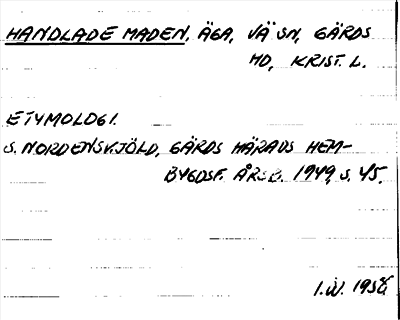 HANDLADE MADEN, ÄGA, VÄ SN, GÄRDS
HD, KRIST. L.
ETYMOLOGI.
S. NORDENSKJÖLD, GÄRDS HÄRADS HEM-
BYGDSF. ÅRSB. 1949, S. 45.
1958